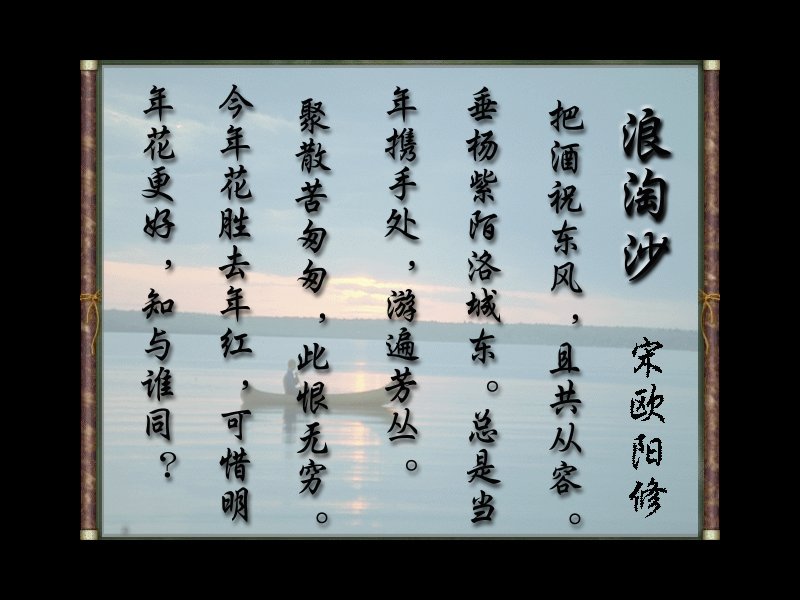 浪淘沙 宋欧阳修
把酒祝东风，且共从容。
垂杨紫陌洛城东。总是当
年携手处，游遍芳丛。
聚散苦匆匆，此恨无穷。
今年花胜去年红，可惜明
年花更好，知与谁同？